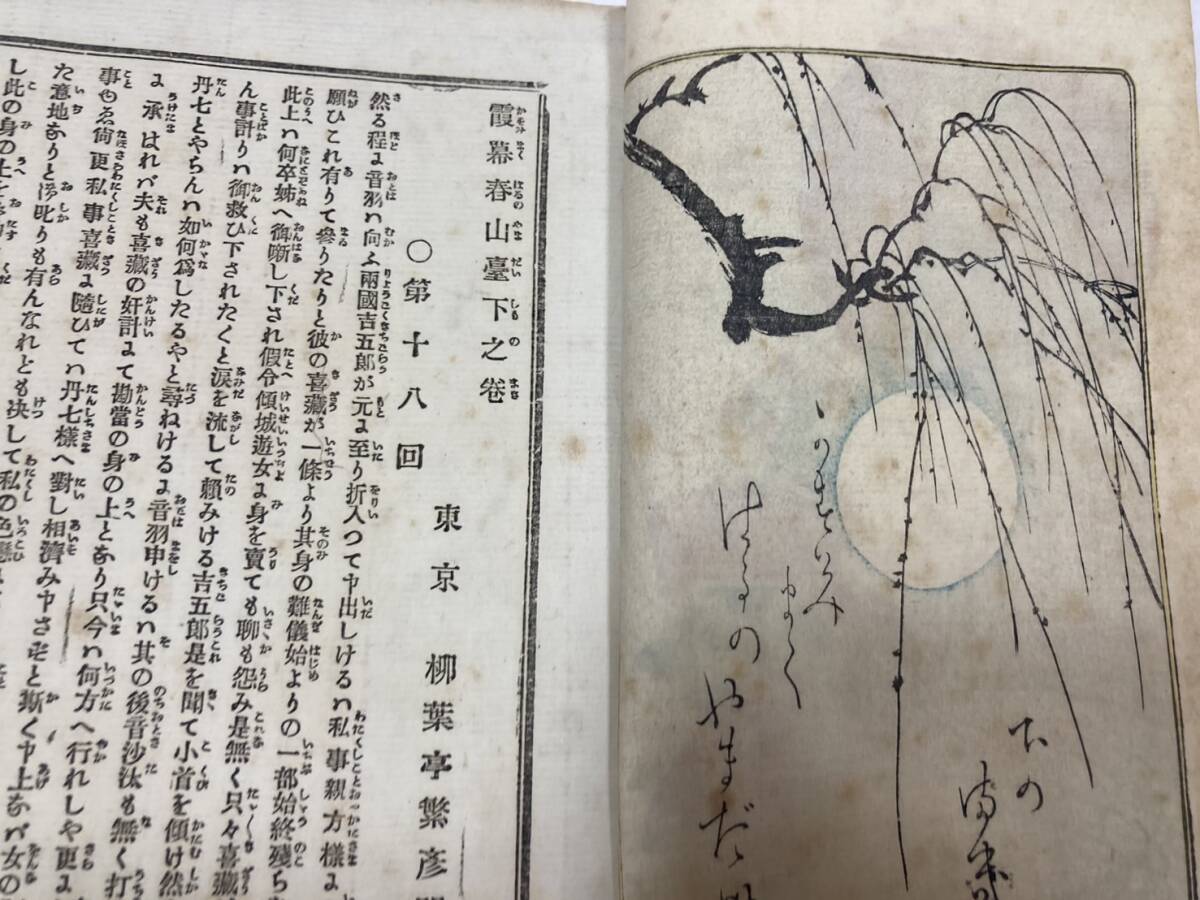 かすみ
まく
はるの
やまだい
下の
霞幕春山臺下之卷
東京 柳葉亭繁彦
〇第十八回
然る程に音羽ハ向ふ兩國吉五郎が元に至り折入つて申出しけるハ私事親方樣に
願ひこれ有りて參りたりと彼の喜藏が一條より其身の難儀始よりの一部始終殘ら
此上ハ何卒姉へ御噺し下され假令傾城遊女に身を賣ても聊も怨み是無く只々喜藏
ん事計りハ御救ひ下されたくと淚を流して賴みける吉五郎是を聞て小首を傾け然
丹七とやらんハ如何爲したるやと尋ねけるに音羽申けるハ其の後音沙汰も無く打
に承はれバ夫も喜藏の奸計にて勘當の身の上となり只今ハ何方へ行れしや更に
事もゑ尙更私事喜藏に隨ひてハ丹七樣へ對し相濟み申さずと斯く申上なバ女の
た意地なりと御叱りも有んなれども决して私の色戀
し此の身の上を